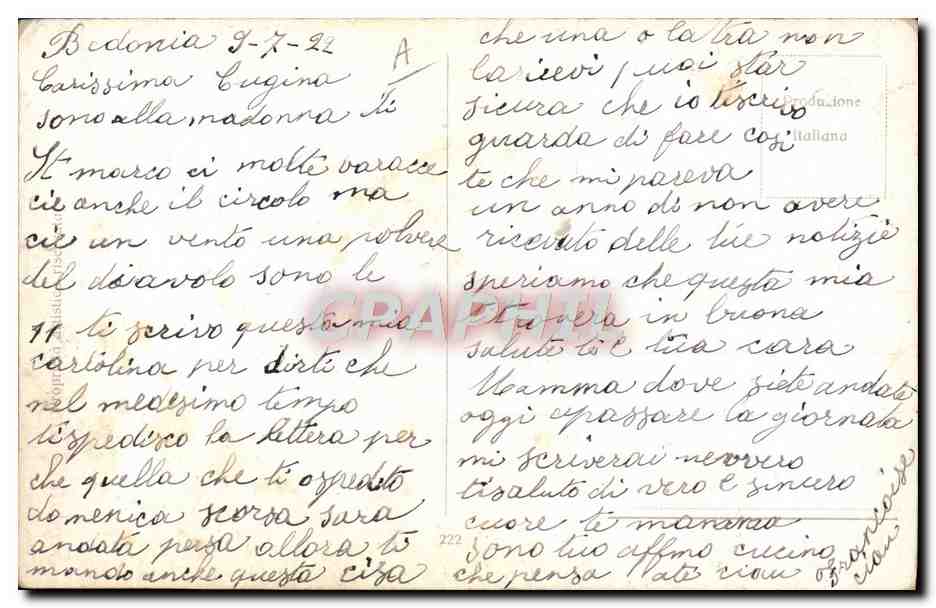 Bedonia 9-7-22
A
Carissima Cugina
sono alla madonna ti
St marco ci molte varacce
cie anche il circolo ma
cie un vento una polvere
del diavolo sono le
11 ti scrivo questa mia
cartolina per dirti che
nel medesimo tempo
tispedisco la lettera per
che quella che ti ospedito
domenica scorsa sara
andata persa allora ti
mando anche questa cisa
che una o latra non
laricevi puoi star
sicura che io tiscrivo
guarda di fare cosi
te che mi pareva
un anno di non avere
ricevuto delle túe notizie
speriamo che questa mia
trovera in buona
salute te e tua cara
Mamma dove siete andate
oggi apassare la giornata
mi scriverai nevvero
tisaluto di vero e sincero
cuore te
sono tuo affmo cucino
che pensa ate ciau
Francoise
ciau
Produzione
italiana
222
CPAPHIL